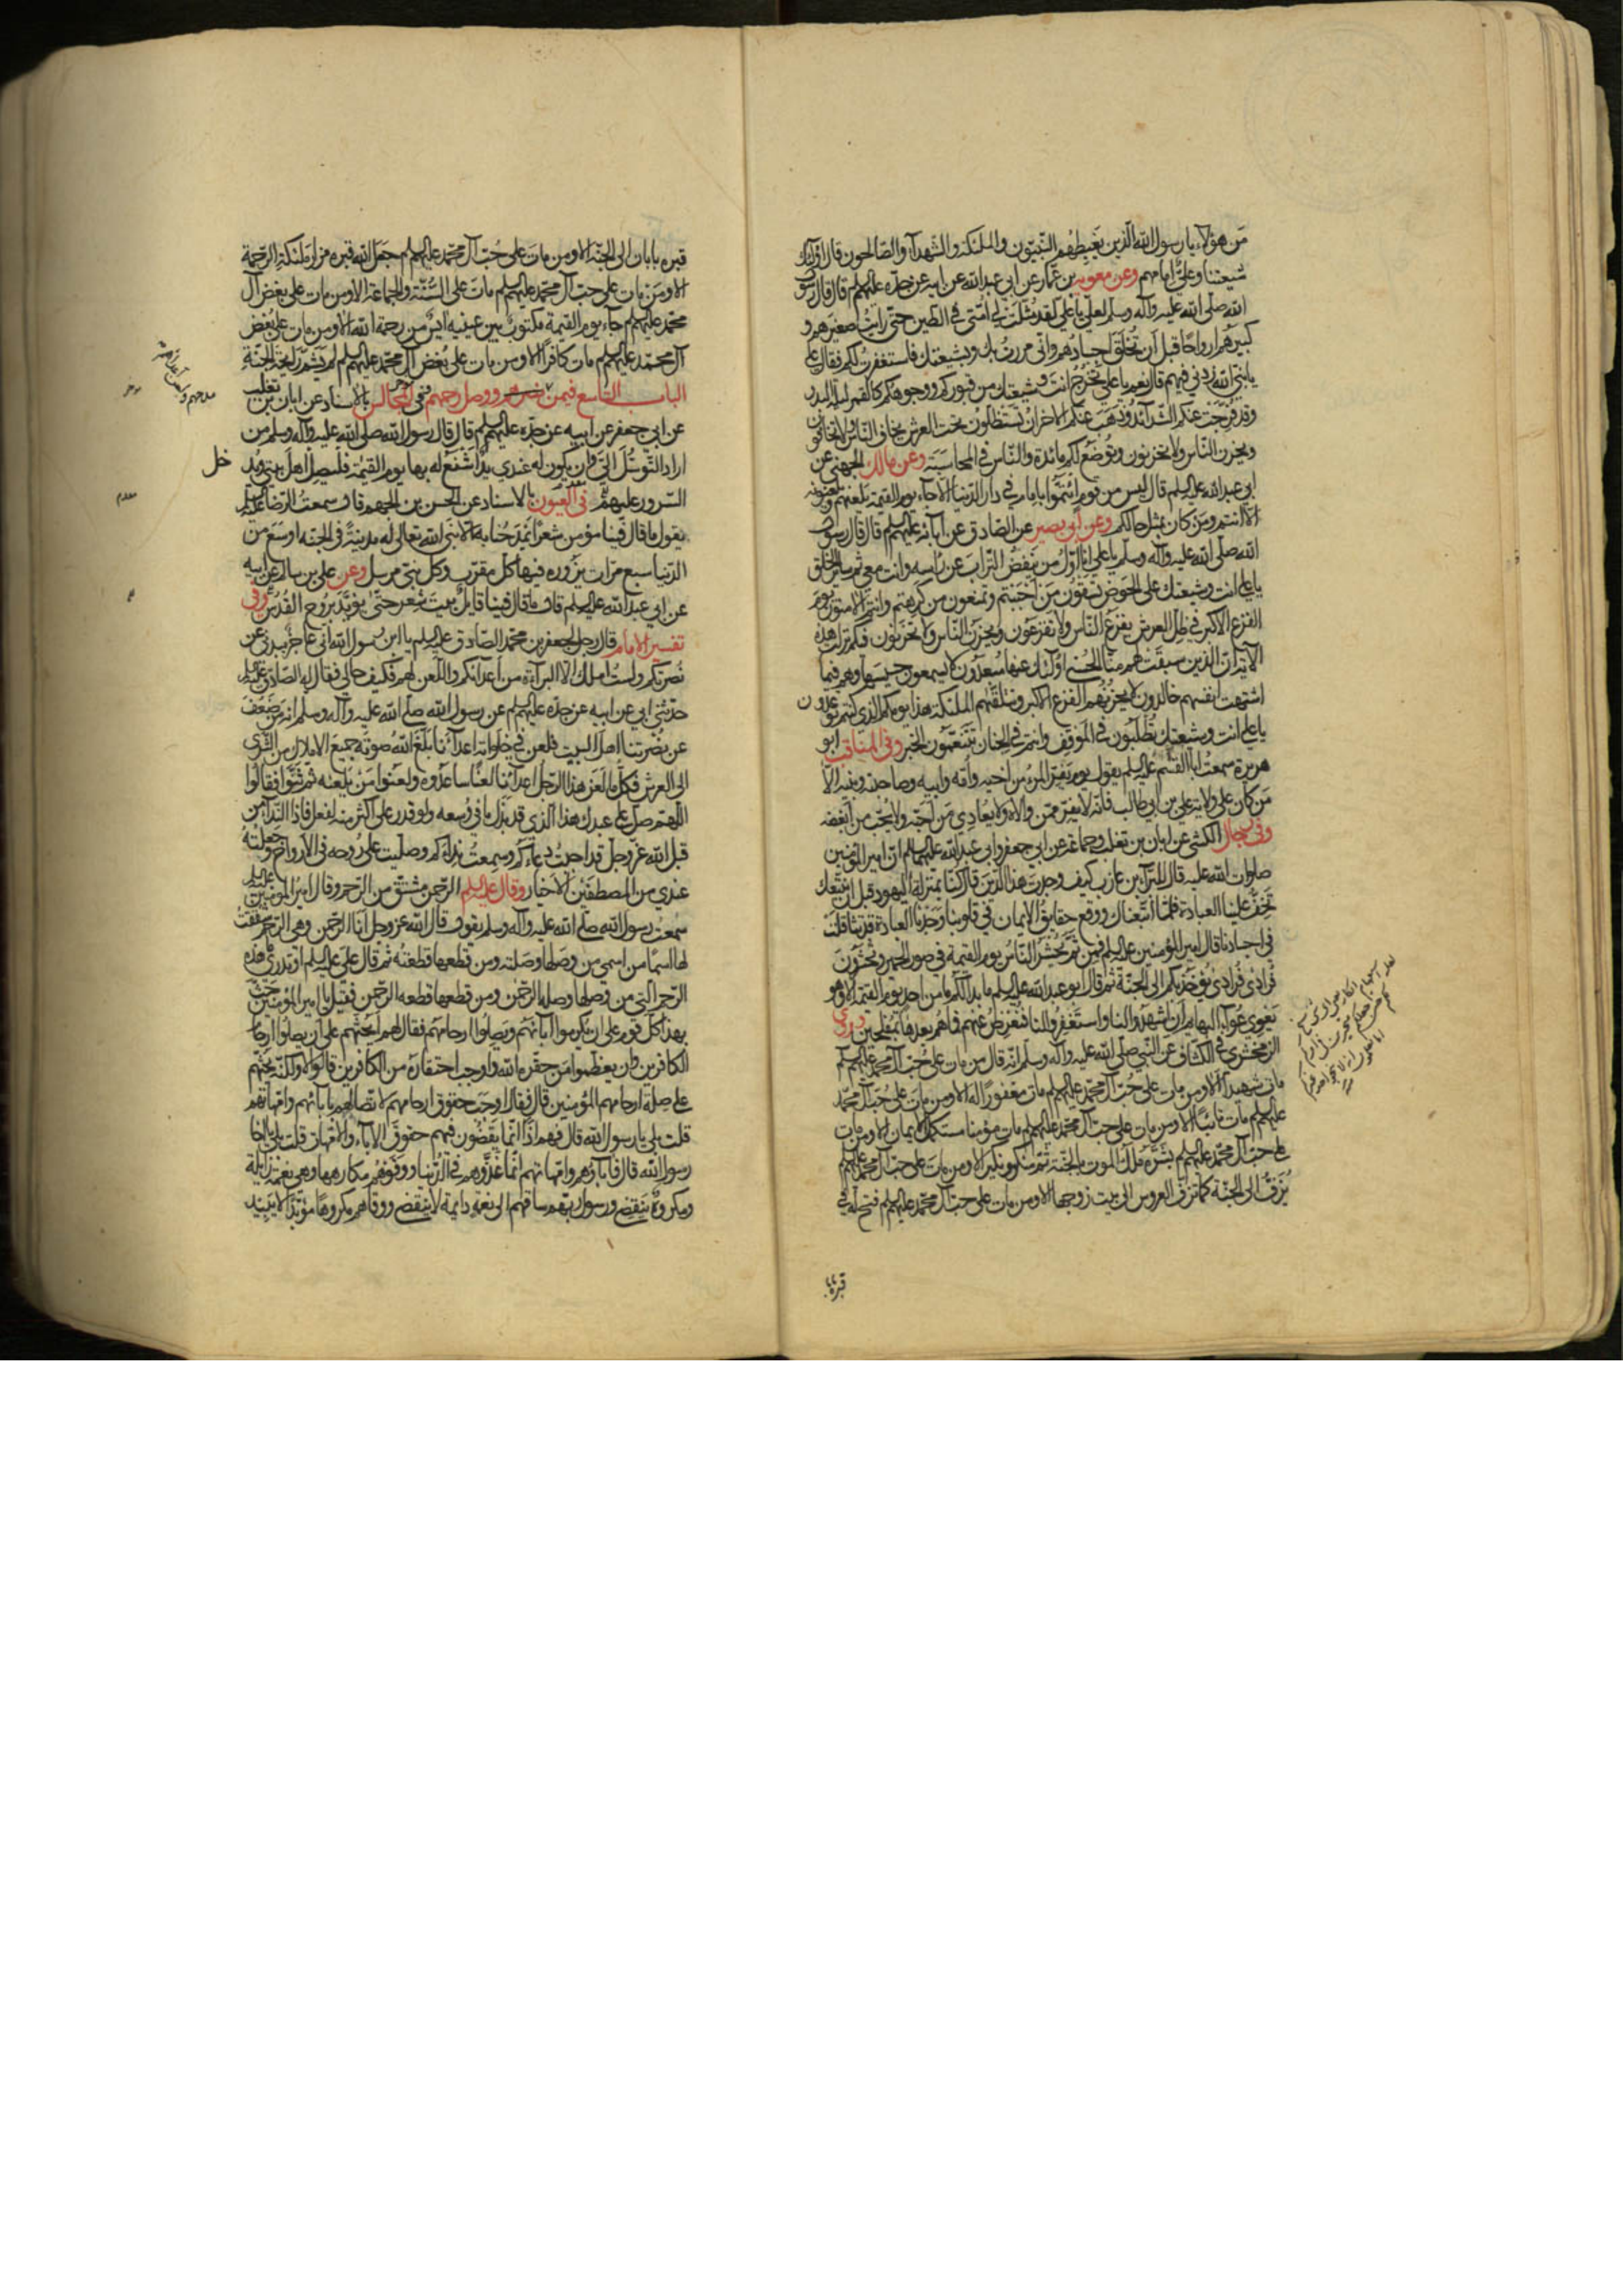 مَن هؤلآء يا رسول الله الّذين يَغبِطهُم النّبيّون والملئكة والشّهدآء والصّالحون قال اولئك
شيعتنا وعليٌّ امامهم وعن معوية بن عمّار عن ابي عبد الله عن ابيه عن جدّه عليهم السلم قال قال رسول
الله صلّى الله عليه وآله وسلّم لعليّ يا علي لقد مُثّلَت لي امّتي في الطّين حتّى رايتُ صغيرهم و
كبيرهم ارواحًا قبل اَن تُخلَقَ اجسادُهم وانّي مررتُ بك وبشيعتك فاستغفرتُ لكم فقال علي
يا نبيّ الله زدني فيهم قال نعم يا علي تخرُجُ انت وشيعتك من قبوركم ووجوهكم كالقمر ليلة البدر
وقد فُرّجَت عنكم الشّدآئد وذهبَت عنكم الاحزان تستظلّون تحت العرش يخاف النّاس ولا تخافون
ويحزن النّاس ولا تحزنون وتُوضَعُ لكم مائدة والنّاس في المحاسَبَة وعن مالك الجهني عن
ابي عبد الله عليه السلم قال ليس من قوم ائتمّوا بامام في دار الدّنيا الّا جآء يوم القيمة يلعنهم ويلعنونه
الّا انتم ومَن كان بمثل حالكم وعن ابي بصير عن الصّادق عن آبائه عليهم السلم قال قال رسول
الله صلّى الله عليه وآله وسلّم يا علي انا اوّل من ينفض التّراب عن راسه وانت معي ثم سائر الخلق
يا علي انت وشيعتك على الحوض تسقون مَن احببتم وتمنعون من كرهتم وانتم الآمنون يوم
الفزع الاكبر في ظل العرش يفزع النّاس ولا تفزعون ويحزن النّاس ولا تحزنون فيكم نزلت هذه
الآية انّ الذين سبقت لهم منّا الحُسنى اولئك عنها مبعدون لا يسمعون حسيسها وهم فيما
اشتهت انفسهم خالدون لا يحزنهم الفزع الاكبر وتتلقّيهم الملئكة هذا يومكم الذي كنتم توعدون
يا علي انت وشيعتك تُطلَبون في الموقف وانتم في الجنان تتنعّمون الخبر وفي المناقب ابو
هريرة سمعتُ ابا القسم عليه السلم يقول يوم يفرّ المرء من اخيه وامّه وابيه وصاحبته وبنيه الّا
مَن كان على ولاية علي بن ابي طالب فانّه لا يفرّ ممّن والاه ولا يعادي مَن احبّه ولا يحبّ من ابغضه
وفي رجال الكشّي عن ابان بن تغلب وجماعة عن ابي جعفر وابي عبد الله عليهما السلم انّ امير المؤمنين
صلوات الله عليه قال للبرآء بن عازب كيف وجدت هذا الدّين قال كنّا بمنزلة اليهود قبل ان نتّبعك
تخفّ علينا العبادة فلمّا اتّبعناك ووقع حقايق الايمان في قلوبنا وجدنا العبادة قد تثاقلت
في اجسادنا قال امير المؤمنين عليه السلم فمن ثمّ يُحشَر النّاسُ يوم القيمة في صور الحمير وتُحشَرون
فُرادى فُرادى يؤخذ بكم الى الجنّة ثم قال ابو عبد الله عليه السلم ما بدا لكم ما من احد يوم القيمة الّا وهو
يعوي عُوآء البهايم اَن اشهدوا لنا واستغفروا لنا فنعرض عنهم فما هم بعدها بمفلحين وروى
الزمخشري في الكشّاف عن النّبي صلّى الله عليه وآله وسلّم انّه قال من مات على حُبّ آل محمد عليهم السلم
مات شهيدًا الا ومن مات على حُبّ آل محمّد عليهم السلم مات مغفورًا له الا ومن مات على حُبّ آل محمّد
عليهم السلم مات تائبًا الا ومن مات على حبّ آل محمّد عليهم السلم مات مؤمنا مستكمل الايمان الا ومن مات
على حبّ آل محمّد عليهم السلم بشّره ملك الموت بالجنّة ثمّ منكر ونكير الا ومن مات على حبّ آل محمّد عليهم السلم
يُزَفّ الى الجنّة كما تزفّ العروس الى بيت زوجها الا ومن مات على حبّ آل محمّد عليهم السلم فتح له في
قبره
قبره بابان الى الجنّة الا ومن مات على حُبّ آل محمّد عليهم السلم جعل الله قبره مزار ملئكة الرّحمة
الا ومَن مات على حبّ آل محمّد عليهم السلم مات على السُّنّة والجماعة الا ومن مات على بغض آل
محمّد عليهم السلم جآء يوم القيمة مكتوبٌ بين عينيه آيسٌ من رحمة الله الا ومن مات على بُغض
آل محمّد عليهم السلم مات كافرًا الا ومن مات على بُغض آل محمّد عليهم السلم لم يشمّ رايحة الجنّة
الباب التاسع فيمن نصرهم ووصل رحمهم في المجالس بالاسناد عن ابان بن تغلب
عن ابي جعفر عن ابيه عن جدّه عليهم السلم قال قال رسول الله صلى الله عليه وآله وسلم من
اراد التوسّل اليّ وان يكون له عندي يدٌ اشفع له بها يوم القيمة فليصل اهل بيتي ويُدخل
السّرور عليهم في العيون بالاسناد عن الحسن بن الجهم قال سمعتُ الرّضا عليه السلم
يقول ما قال فينا مؤمن شعرًا يمدحنا به الّا بنى الله تعالى له مدينةً في الجنّة اوسع من
الدّنيا سبع مرّات يزوره فيها كل ملك مقرّب وكل نبيّ مرسل وعن علي بن سالم عن ابيه
عن ابي عبد الله عليه السلم قال ما قال فينا قايلٌ بيتَ شعر حتّى يؤيَّد بروح القُدُس وفي
تفسير الامام قال رجل لجعفر بن محمّد الصّادق عليه السلم يا ابن رسول الله انّي عاجز ببدني عن
نُصرتكم ولستُ املك الّا البرآءة من اعدآئكم واللّعن لهم فكيف حالي فقال له الصّادق عليه السلم
حدّثني ابي عن ابيه عن جدّه عليهم السلم عن رسول الله صلى الله عليه وآله وسلم انه من ضَعُفَ
عن نُصرتنا اهل البيت فلعن في خلواته اعدآئنا بلّغ الله صوتَه جميع الاملاك من الثّرى
الى العرش فكلّما لَعَن هذا الرّجل اعدآئنا لعنًا ساعدوه ولعنوا مَن يلعنه ثم ثنّوا فقالوا
اللّهم صلّ على عبدك هذا الذي قد بذل ما في وسعه ولو قدر على اكثر منه لفعل فاذا النّدآء من
قبل الله عزّ وجلّ قد اجبتُ دعاءكم وسمعتُ ندآءكم وصلّيت على روحه في الارواح وجعلتُه
عندي من المصطفَين الاخيار وقال عليه السلم الرّحمن مشتقّ من الرّحم وقال امير المؤمنين عليه السلم
سمعتُ رسول الله صلى الله عليه وآله وسلم يقول قال الله عز وجل انا الرّحمن وهي الرّحم شققتُ
لها اسمًا من اسمي من وصلها وصلته ومن قطعها قطعته ثم قال علي عليه السلم او تدري ما هذه
الرّحم التي من وصلها وصله الرّحمن ومن قطعها قطعه الرّحمن فقيل يا امير المؤمنين حثّ
بهذا كلّ قوم على ان يكرموا آبائهم ويصلوا ارحامهم فقال لهم ايحثّهم على ان يصلوا ارحام
الكافرين وان يعظّموا مَن حقّره الله واوجب احتقاره من الكافرين قالوا لا ولكنّه يحثّهم
على صلة ارحامهم المؤمنين قال فقال اوجب حقوق ارحامهم لاتّصالهم بآبائهم وامّهاتهم
قلت بلى يا رسول الله قال فهم اذًا انّما يقضون فيهم حقوق الآباء والامّهات قلت بلى يا اخا
رسول الله قال فآباؤهم وامّهاتهم انّما غذّوهم في الدّنيا ووقوهم مكارهها وهي نعمة زايلة
ومكروهٌ ينقضي ورسول ربّهم ساقهم الى نعمة دايمة لا ينقضي ووقاهم مكروهًا مؤبّدًا لا يبيد